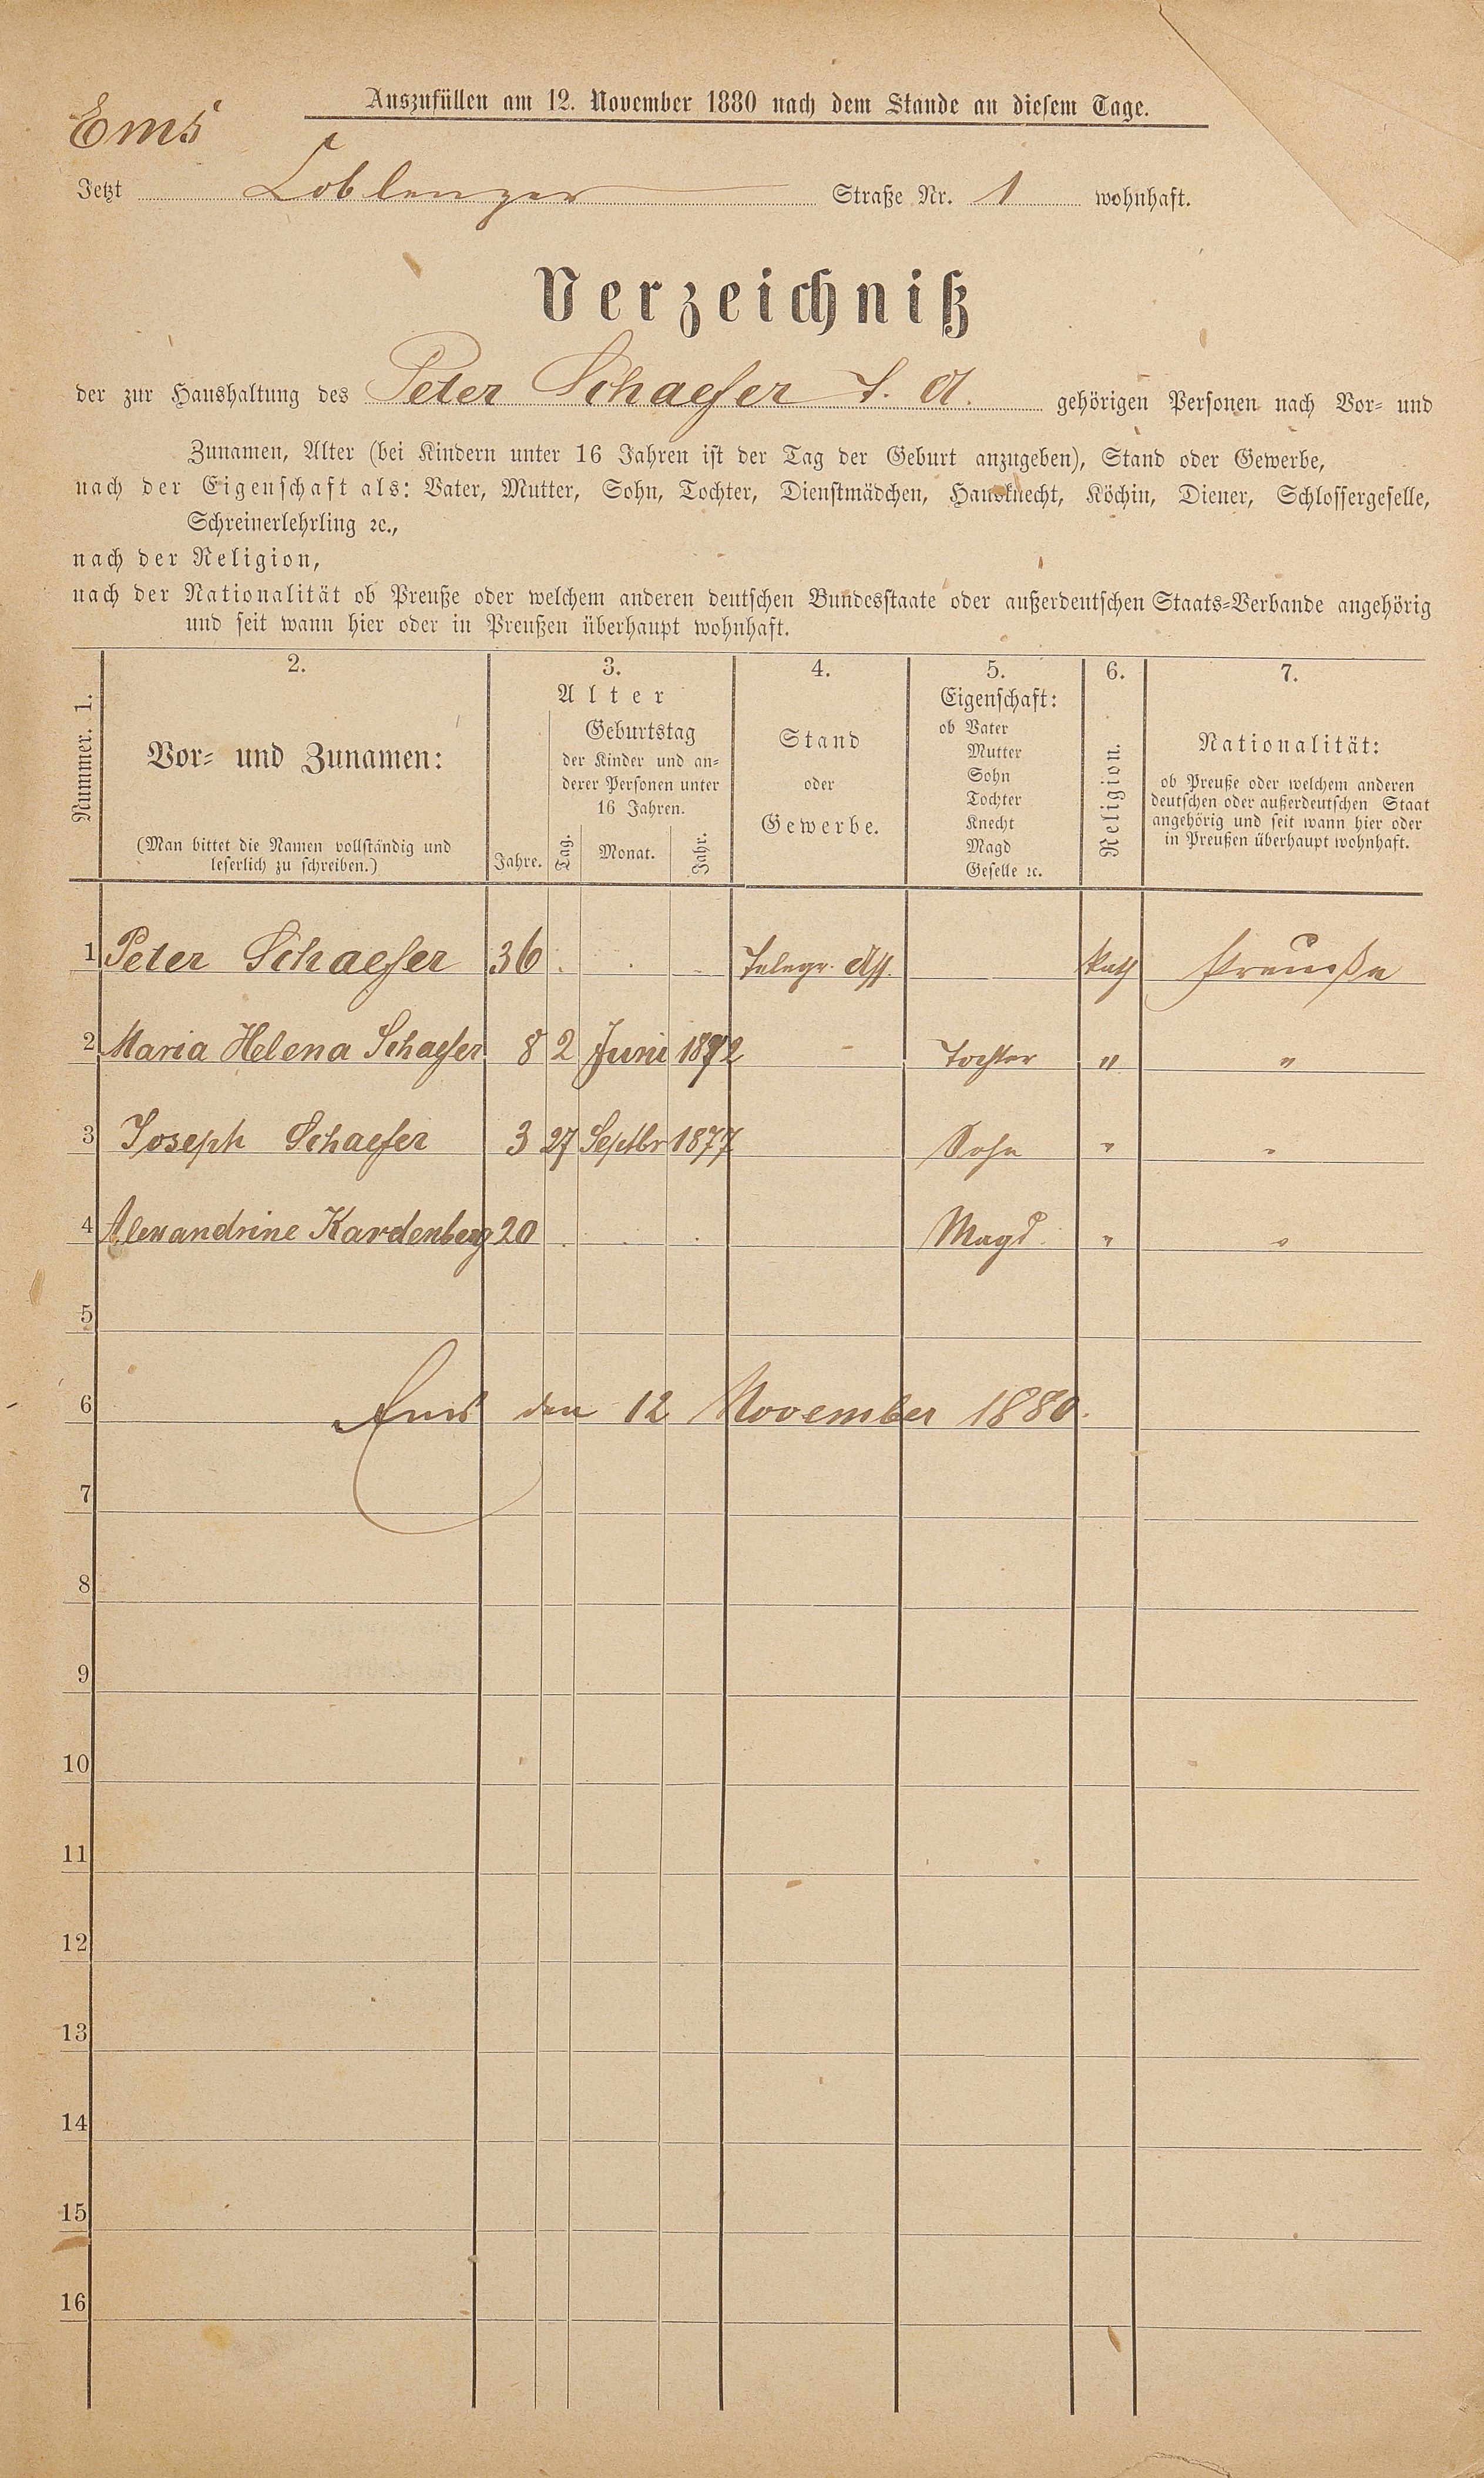 Auszufüllen am 12. November 1880 nach dem Stande an diesem Tage.
Ems
Jetzt Coblenzer Straße Nr. 1 wohnhaft.
Verzeichniß
der zur Haushaltung des Peter Schaefer T. A. gehörigen Personen nach Vor- und
Zunamen, Alter (bei Kindern unter 16 Jahren ist der Tag der Geburt anzugeben), Stand oder Gewerbe,
nach der Eigenschaft als: Vater, Mutter, Sohn, Tochter, Dienstmädchen, Hausknecht, Köchin, Diener, Schlossergeselle,
Schreinerlehrling ꝛc.,
nach der Religion,
nach der Nationalität ob Preuße oder welchem anderen deutschen Bundesstaate oder außerdeutschen Staats-Verbande angehörig
und seit wann hier oder in Preußen überhaupt wohnhaft.
Nummer. 1.
2.
Vor- und Zunamen:
(Man bittet die Namen vollständig und
leserlich zu schreiben.)
3.
Alter
Jahre.
Geburtstag
der Kinder und an-
derer Personen unter
16 Jahren.
Tag. Monat. Jahr.
4.
Stand
oder
Gewerbe.
5.
Eigenschaft:
ob Vater
Mutter
Sohn
Tochter
Knecht
Magd
Geselle ꝛc.
6.
Religion.
7.
Nationalität:
ob Preuße oder welchem anderen
deutschen oder außerdeutschen Staat
angehörig und seit wann hier oder
in Preußen überhaupt wohnhaft.
1 Peter Schaefer 36 . . Telegr. Ass. Kath Preuße
2 Maria Helena Schaefer 8 2 Juni 1872 - Tochter " "
3 Joseph Schaefer 3 27 Septbr 1877 Sohn " "
4 Alexandrine Kardenberg 20 . . . Magd. " "
5
6 Ems den 12 November 1880.
7
8
9
10
11
12
13
14
15
16